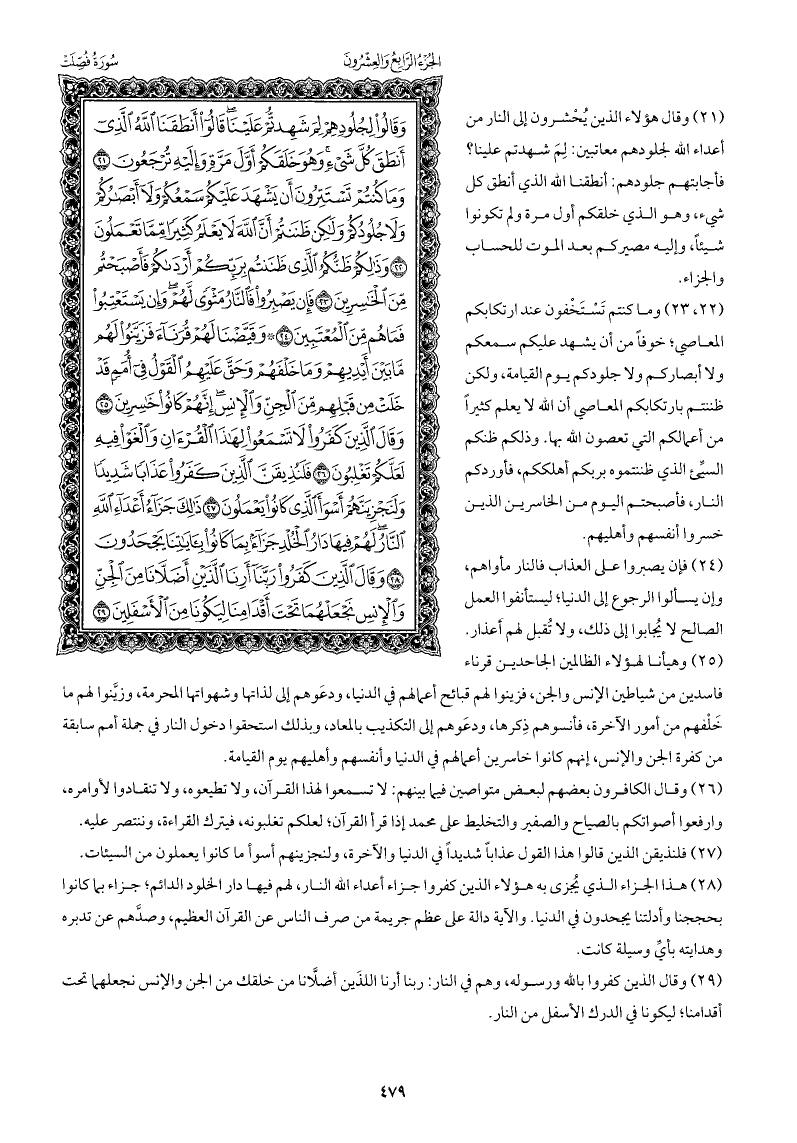 الجزء الرابع والعشرون
سورة فصلت
وَقَالُوا لِجُلُودِهِمْ لِمَ شَهِدتُّمْ عَلَيْنَا قَالُوا أَنطَقَنَا اللَّهُ الَّذِي
أَنطَقَ كُلَّ شَيْءٍ وَهُوَ خَلَقَكُمْ أَوَّلَ مَرَّةٍ وَإِلَيْهِ تُرْجَعُونَ ٢١
وَمَا كُنتُمْ تَسْتَتِرُونَ أَن يَشْهَدَ عَلَيْكُمْ سَمْعُكُمْ وَلَا أَبْصَارُكُمْ
وَلَا جُلُودُكُمْ وَلَٰكِن ظَنَنتُمْ أَنَّ اللَّهَ لَا يَعْلَمُ كَثِيرًا مِّمَّا تَعْمَلُونَ
٢٢ وَذَٰلِكُمْ ظَنُّكُمُ الَّذِي ظَنَنتُم بِرَبِّكُمْ أَرْدَاكُمْ فَأَصْبَحْتُم
مِّنَ الْخَاسِرِينَ ٢٣ فَإِن يَصْبِرُوا فَالنَّارُ مَثْوًى لَّهُمْ وَإِن يَسْتَعْتِبُوا
فَمَا هُم مِّنَ الْمُعْتَبِينَ ٢٤ ۞ وَقَيَّضْنَا لَهُمْ قُرَنَاءَ فَزَيَّنُوا لَهُم
مَّا بَيْنَ أَيْدِيهِمْ وَمَا خَلْفَهُمْ وَحَقَّ عَلَيْهِمُ الْقَوْلُ فِي أُمَمٍ قَدْ
خَلَتْ مِن قَبْلِهِم مِّنَ الْجِنِّ وَالْإِنسِ إِنَّهُمْ كَانُوا خَاسِرِينَ ٢٥
وَقَالَ الَّذِينَ كَفَرُوا لَا تَسْمَعُوا لِهَٰذَا الْقُرْآنِ وَالْغَوْا فِيهِ
لَعَلَّكُمْ تَغْلِبُونَ ٢٦ فَلَنُذِيقَنَّ الَّذِينَ كَفَرُوا عَذَابًا شَدِيدًا
وَلَنَجْزِيَنَّهُمْ أَسْوَأَ الَّذِي كَانُوا يَعْمَلُونَ ٢٧ ذَٰلِكَ جَزَاءُ أَعْدَاءِ اللَّهِ
النَّارُ لَهُمْ فِيهَا دَارُ الْخُلْدِ جَزَاءً بِمَا كَانُوا بِآيَاتِنَا يَجْحَدُونَ
٢٨ وَقَالَ الَّذِينَ كَفَرُوا رَبَّنَا أَرِنَا اللَّذَيْنِ أَضَلَّانَا مِنَ الْجِنِّ
وَالْإِنسِ نَجْعَلْهُمَا تَحْتَ أَقْدَامِنَا لِيَكُونَا مِنَ الْأَسْفَلِينَ ٢٩
(٢١) وقال هؤلاء الذين يُحْشرون إلى النار من
أعداء الله لجلودهم معاتبين: لِمَ شهدتم علينا؟
فأجابتهم جلودهم: أنطقنا الله الذي أنطق كل
شيء، وهو الذي خلقكم أول مرة ولم تكونوا
شيئاً، وإليه مصيركم بعد الموت للحساب
والجزاء.
(٢٢، ٢٣) وما كنتم تَسْتَخْفون عند ارتكابكم
المعاصي؛ خوفاً من أن يشهد عليكم سمعكم
ولا أبصاركم ولا جلودكم يوم القيامة، ولكن
ظننتم بارتكابكم المعاصي أن الله لا يعلم كثيراً
من أعمالكم التي تعصون الله بها. وذلكم ظنكم
السيِّئ الذي ظننتموه بربكم أهلككم، فأوردكم
النار، فأصبحتم اليوم من الخاسرين الذين
خسروا أنفسهم وأهليهم.
(٢٤) فإن يصبروا على العذاب فالنار مأواهم،
وإن يسألوا الرجوع إلى الدنيا؛ ليستأنفوا العمل
الصالح لا يُجابوا إلى ذلك، ولا تُقبل لهم أعذار.
(٢٥) وهيأنا لهؤلاء الظالمين الجاحدين قرناء
فاسدين من شياطين الإنس والجن، فزينوا لهم قبائح أعمالهم في الدنيا، ودعَوهم إلى لذاتها وشهواتها المحرمة، وزيَّنوا لهم ما
خَلْفهم من أمور الآخرة، فأنسوهم ذِكرها، ودعَوهم إلى التكذيب بالمعاد، وبذلك استحقوا دخول النار في جملة أمم سابقة
من كفرة الجن والإنس، إنهم كانوا خاسرين أعمالهم في الدنيا وأنفسهم وأهليهم يوم القيامة.
(٢٦) وقال الكافرون بعضهم لبعض متواصين فيما بينهم: لا تسمعوا لهذا القرآن، ولا تطيعوه، ولا تنقادوا لأوامره،
وارفعوا أصواتكم بالصياح والصفير والتخليط على محمد إذا قرأ القرآن؛ لعلكم تغلبونه، فيترك القراءة، وننتصر عليه.
(٢٧) فلنذيقن الذين قالوا هذا القول عذاباً شديداً في الدنيا والآخرة، ولنجزينهم أسوأ ما كانوا يعملون من السيئات.
(٢٨) هذا الجزاء الذي يُجزى به هؤلاء الذين كفروا جزاء أعداء الله النار، لهم فيها دار الخلود الدائم؛ جزاء بما كانوا
بحججنا وأدلتنا يجحدون في الدنيا. والآية دالة على عظم جريمة من صرف الناس عن القرآن العظيم، وصدَّهم عن تدبره
وهدايته بأيِّ وسيلة كانت.
(٢٩) وقال الذين كفروا بالله ورسوله، وهم في النار: ربنا أرنا اللذَين أضلَّانا من خلقك من الجن والإنس نجعلهما تحت
أقدامنا؛ ليكونا في الدرك الأسفل من النار.
٤٧٩